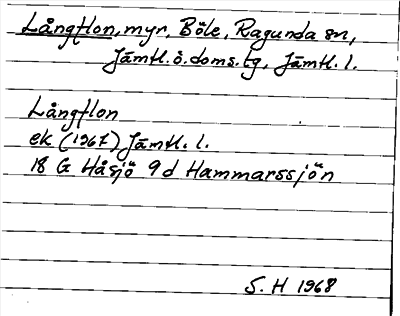 Långflon, myr, Böle, Ragunda sn,
Jämtl. ö. doms. tg, Jämtl. l.
Långflon
ek (1967) Jämtl. l.
18 G Håsjö 9 d Hammarssjön
S. H 1968